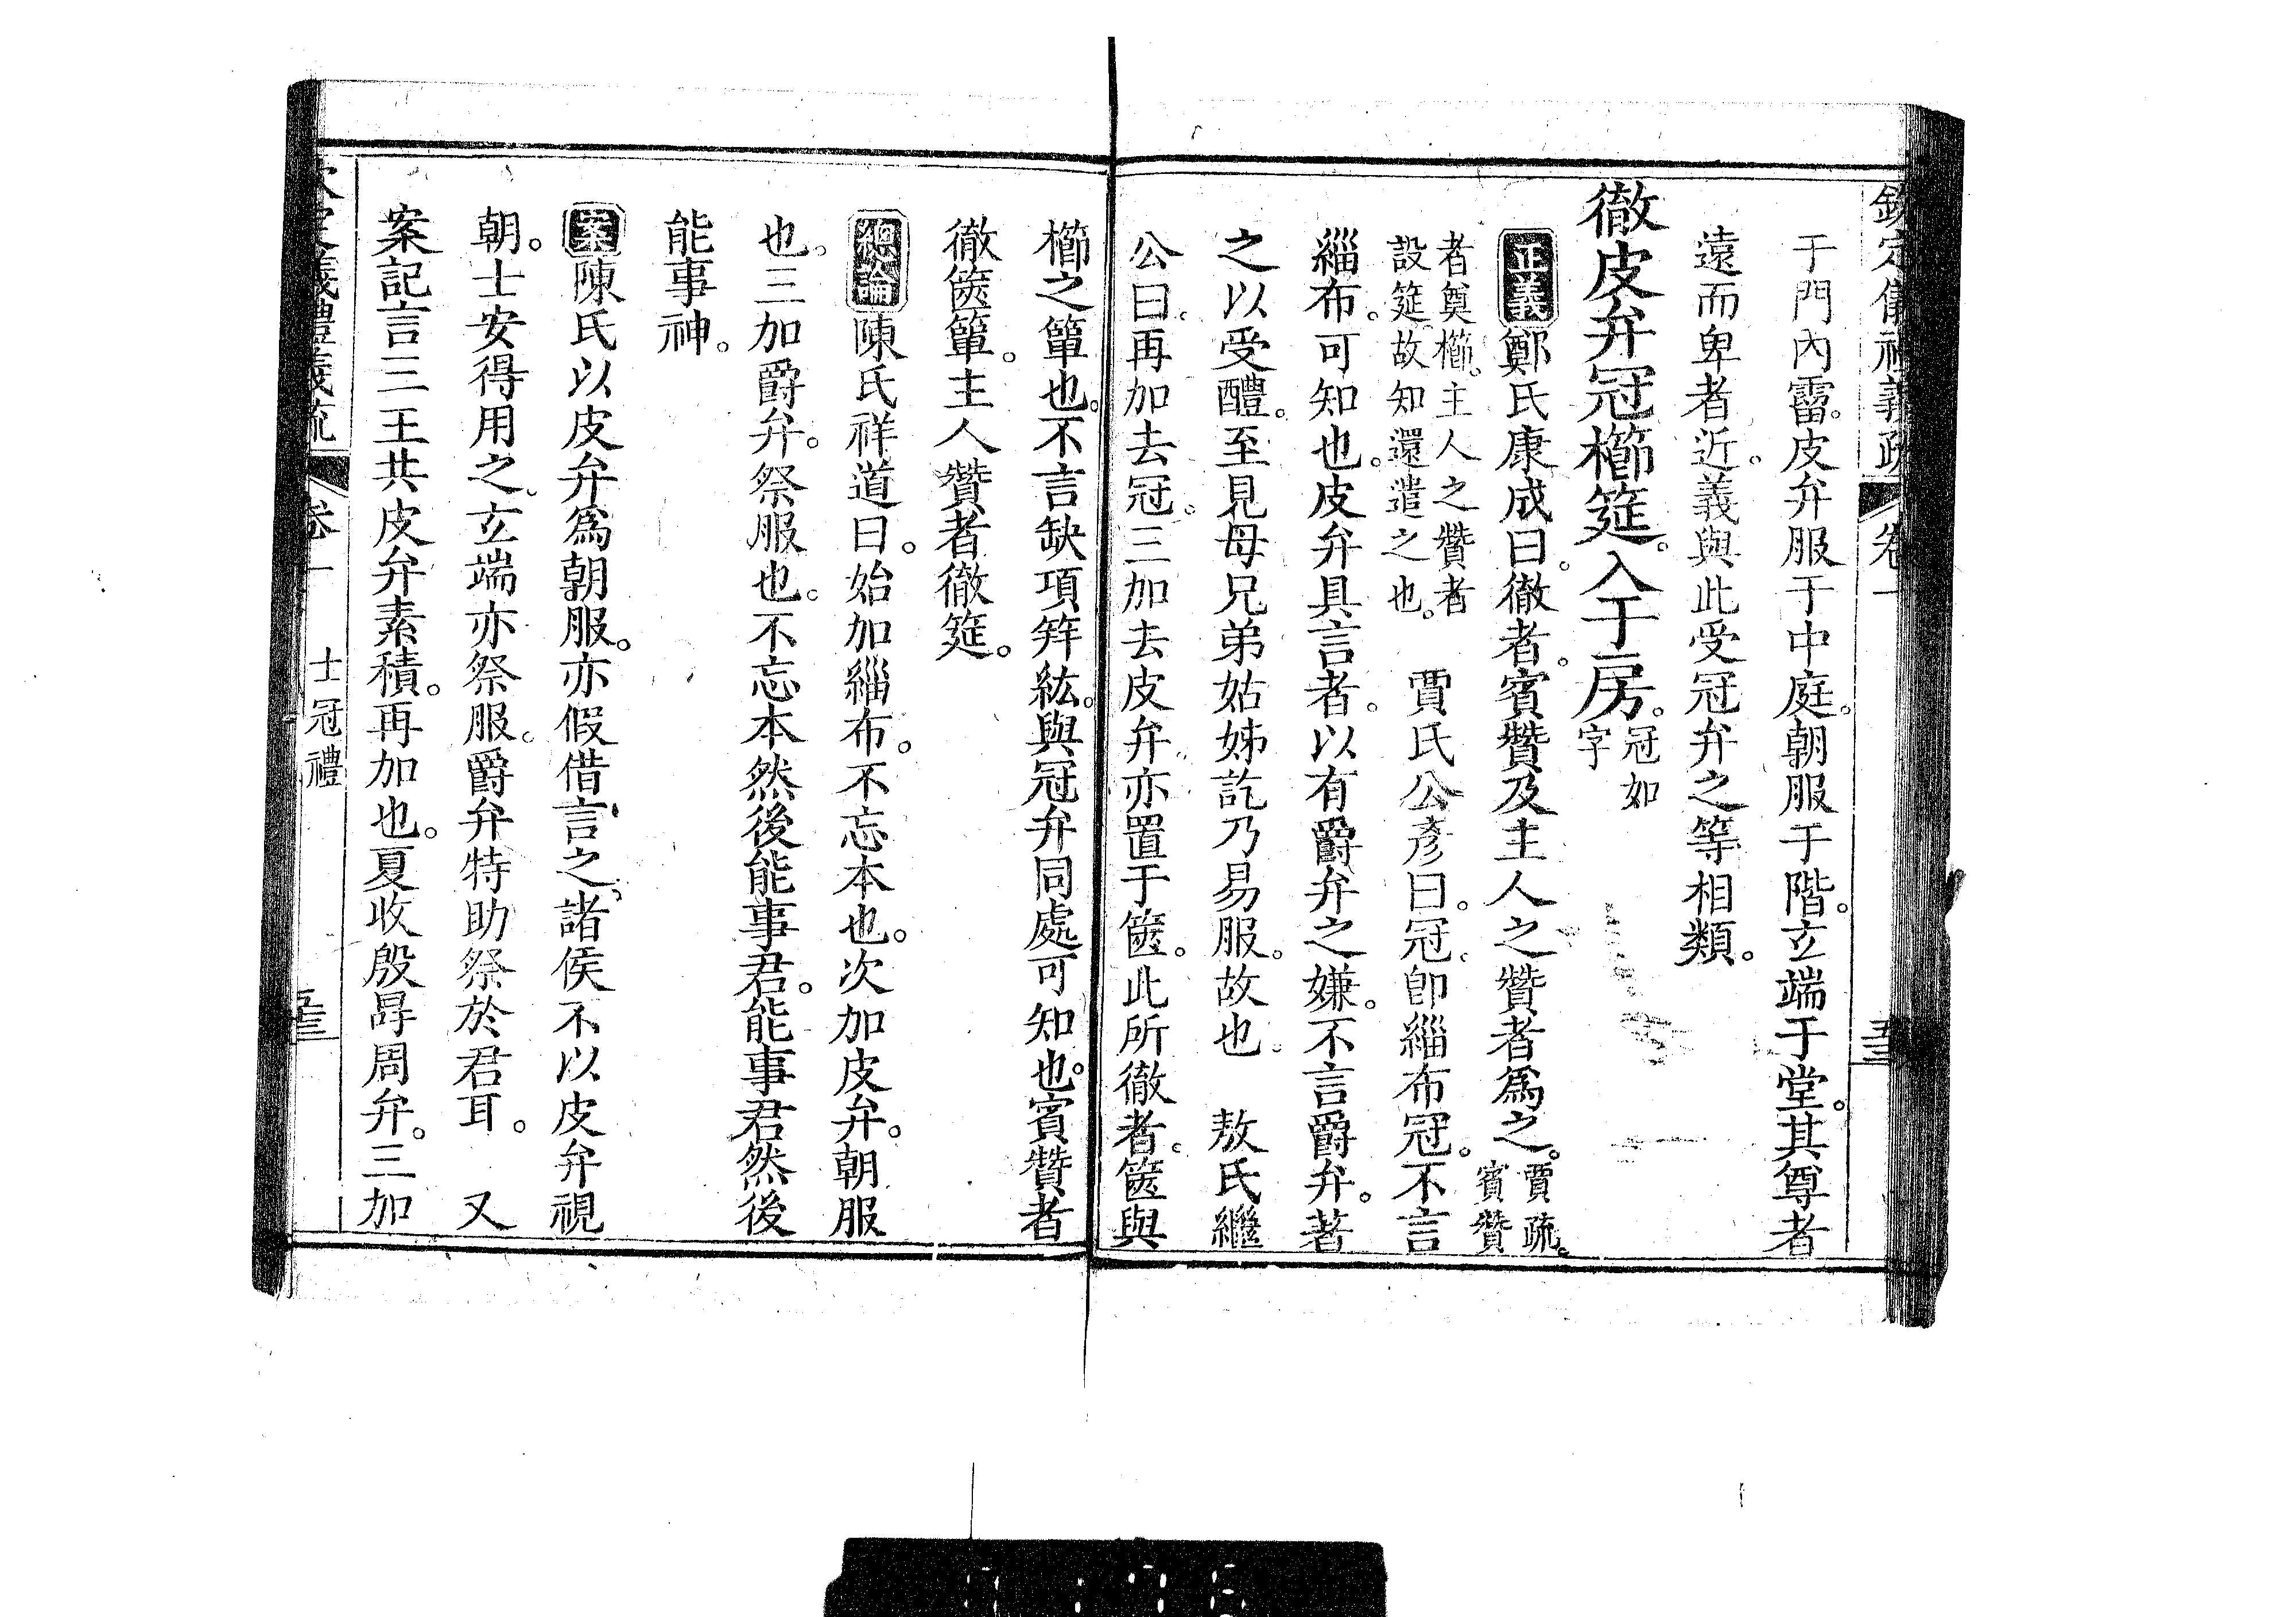 欽定儀禮義疏 卷一
于門內霤。皮弁服于中庭。朝服于階。玄端于堂。其尊者
遠而卑者近。義與此受冠弁之等相類。
徹皮弁冠櫛筵。入于房。冠如字
正義鄭氏康成曰。徹者。賓贊及主人之贊者爲之。賈疏。賓贊
者奠櫛。主人之贊者設筵。故知還遣之也。 賈氏公彥曰。冠。卽緇布冠。不言
緇布。可知也。皮弁具言者。以有爵弁之嫌。不言爵弁。著
之以受醴。至見母兄弟姑姊訖乃易服。故也。 敖氏繼
公曰。再加去冠。三加去皮弁。亦置于篋。此所徹者。篋與
櫛之簞也。不言缺項笄紘。與冠弁同處可知也。賓贊者
徹篋簞。主人贊者徹筵。
總論陳氏祥道曰。始加緇布。不忘本也。次加皮弁。朝服
也。三加爵弁。祭服也。不忘本然後能事君。能事君然後
能事神。
案陳氏以皮弁爲朝服。亦假借言之。諸侯不以皮弁視
朝。士安得用之。玄端亦祭服。爵弁特助祭於君耳。 又
案記言三王共皮弁素積。再加也。夏收殷冔周弁。三加
義禮義疏 卷一 士冠禮